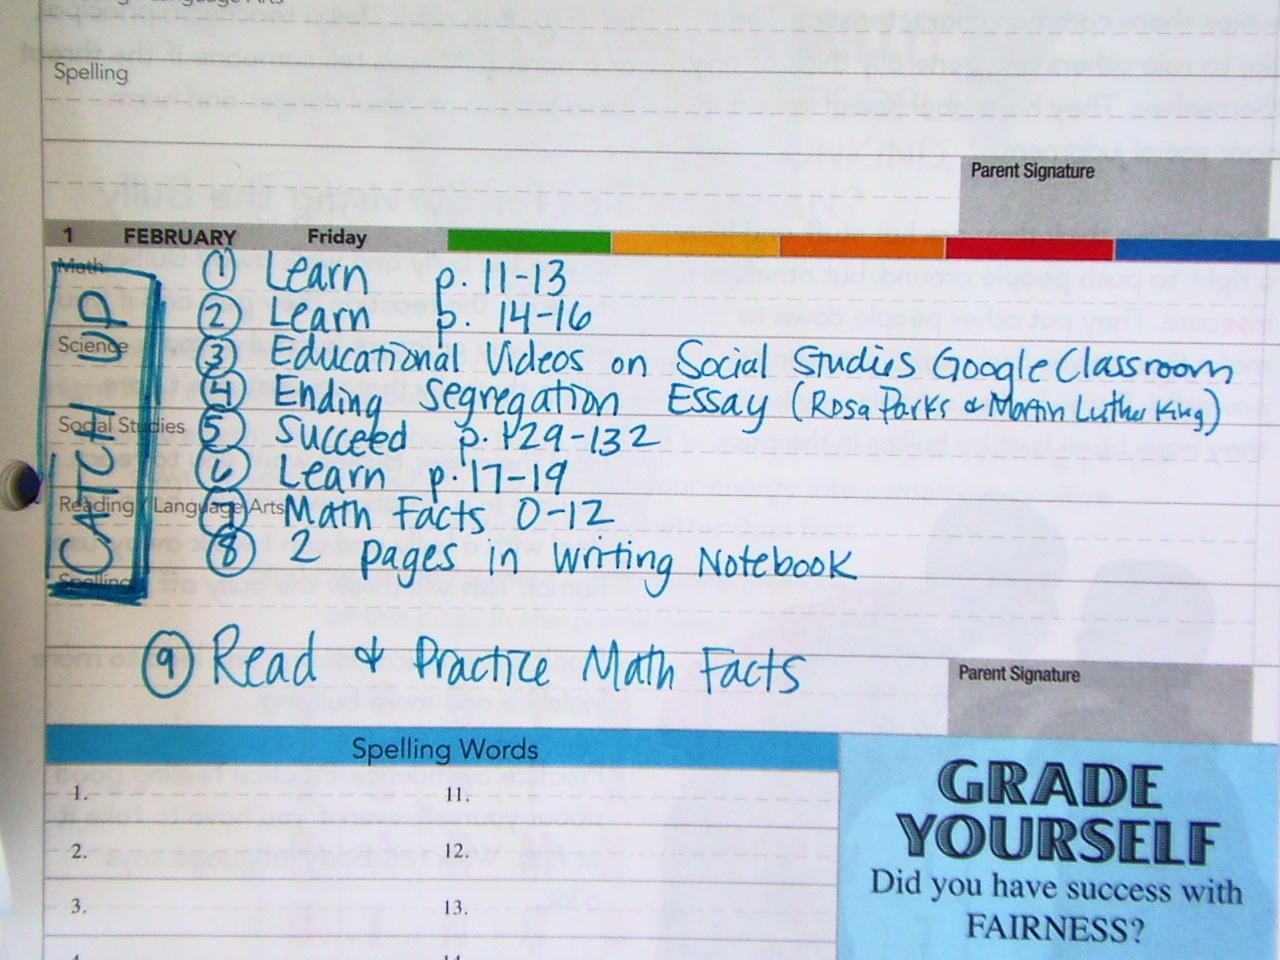 Spelling
Parent Signature
1 FEBRUARY Friday
Math
Science
Social Studies
Reading / Language Arts
Spelling
CATCH UP
① Learn p. 11-13
② Learn p. 14-16
③ Educational Videos on Social Studies Google Classroom
④ Ending Segregation Essay (Rosa Parks & Martin Luther King)
⑤ Succeed p. 129-132
⑥ Learn p. 17-19
⑦ Math Facts 0-12
⑧ 2 pages in Writing Notebook
⑨ Read & Practice Math Facts
Parent Signature
Spelling Words
1. 11.
2. 12.
3. 13.
GRADE
YOURSELF
Did you have success with
FAIRNESS?